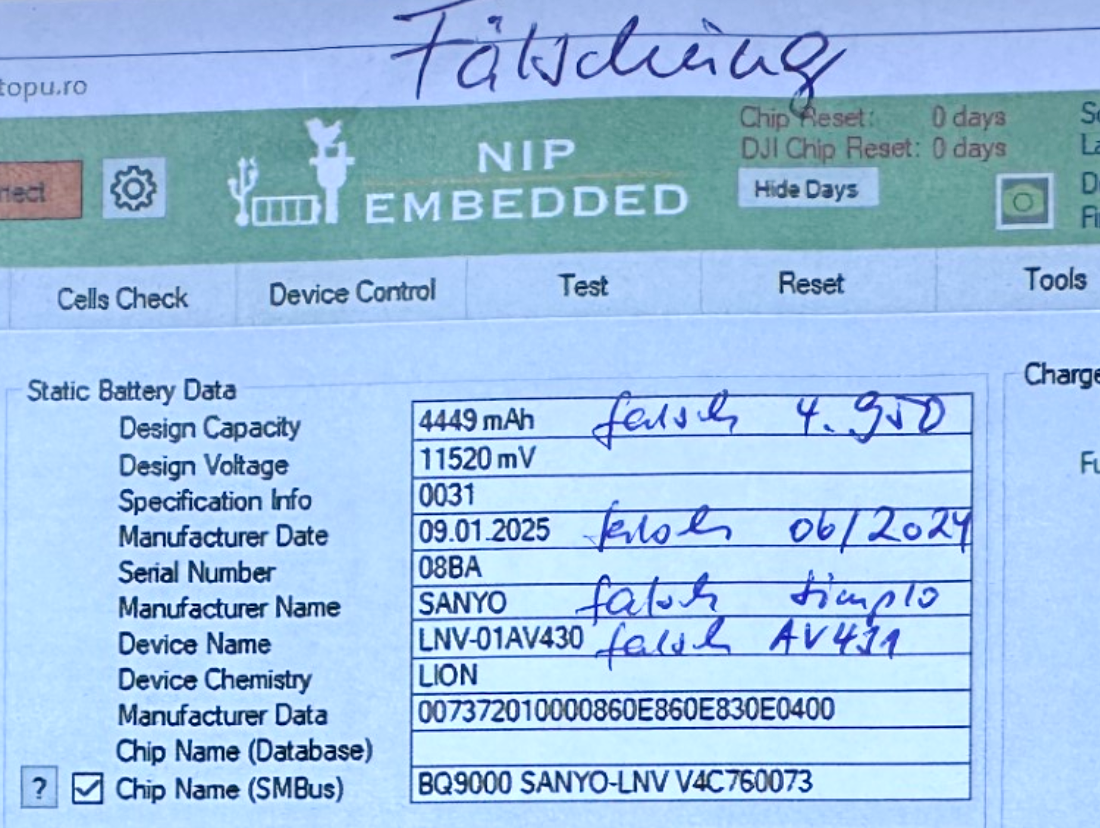 Fälschung
topu.ro
nect
NIP
EMBEDDED
Chip Reset: 0 days
DJI Chip Reset: 0 days
Hide Days
Cells Check Device Control Test Reset Tools
Static Battery Data
Charge
Design Capacity 4449 mAh falsch 4.950
Design Voltage 11520 mV
Specification Info 0031
Manufacturer Date 09.01.2025 falsch 06/2024
Serial Number 08BA
Manufacturer Name SANYO falsch Simplo
Device Name LNV-01AV430 falsch AV431
Device Chemistry LION
Manufacturer Data 007372010000860E860E830E0400
Chip Name (Database)
? Chip Name (SMBus) BQ9000 SANYO-LNV V4C760073